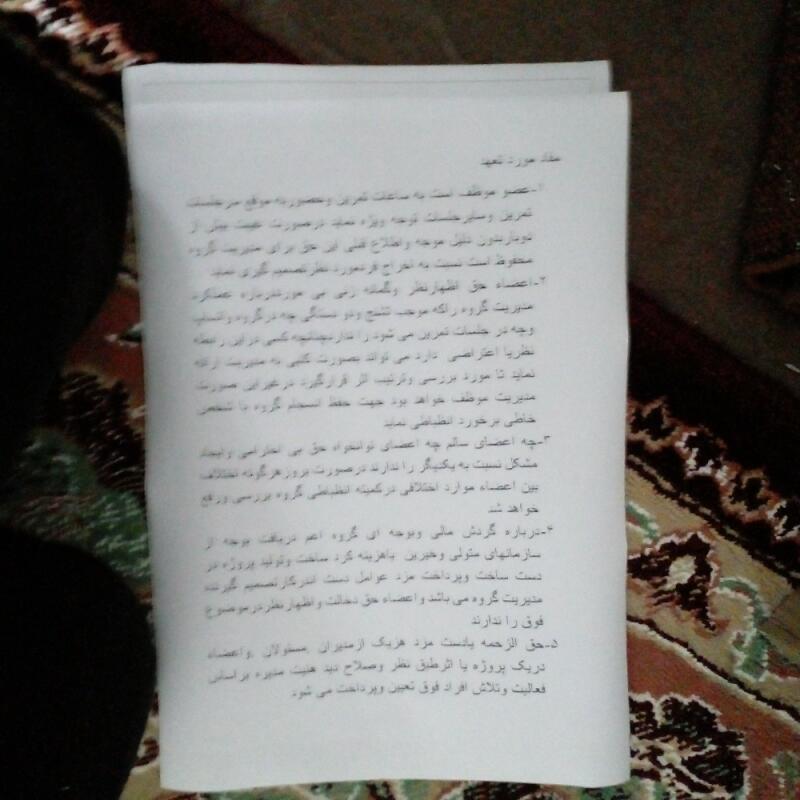 مفاد مورد تعهد
۱-عضو موظف است به ساعات تمرین وحضوربه موقع سرجلسات
تمرین وسایرجلسات توجه ویژه نماید درصورت غیبت بیش از
دوباربدون دلیل موجه واطلاع قبلی این حق برای مدیریت گروه
محفوظ است نسبت به اخراج فردمورد نظرتصمیم گیری نماید
۲-اعضاء حق اظهارنظر وگمانه زنی بی موردرباره عملکرد
مدیریت گروه راکه موجب تشنج ودو دستگی چه درگروه واتساپ
وچه در جلسات تمرین می شود را نداردچنانچه کسی دراین رابطه
نظریا اعتراضی دارد می تواند بصورت کتبی به مدیریت ارائه
نماید تا مورد بررسی وترتیب اثر قرارگیرد درغیراین صورت
مدیریت موظف خواهد بود جهت حفظ انسجام گروه با شخص
خاطی برخورد انظباطی نماید
۳-چه اعضای سالم چه اعضای توانخواه حق بی احترامی وایجاد
مشکل نسبت به یکدیگر را ندارند درصورت بروزهرگونه اختلاف
بین اعضاء موارد اختلافی درکمیته انظباطی گروه بررسی ورفع
خواهد شد
۴-درباره گردش مالی وبوجه ای گروه اعم دریافت بوجه از
سازمانهای متولی وخیرین باهزینه کرد ساخت وتولید پروژه در
دست ساخت وپرداخت مزد عوامل دست اندرکارتصمیم گیرنده
مدیریت گروه می باشد واعضاء حق دخالت واظهارنظردرموضوع
فوق را ندارند
۵-حق الزحمه یادست مزد هریک ازمدیران ,مسئولان ,واعضاء
دریک پروژه یا اثرطبق نظر وصلاح دید هئیت مدیره براساس
فعالیت وتلاش افراد فوق تعیین وپرداخت می شود.